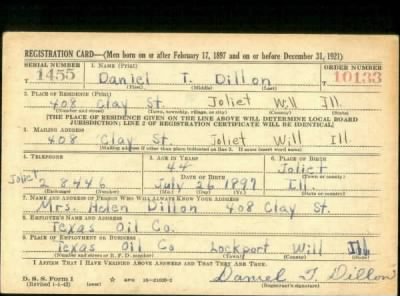 REGISTRATION CARD—(Men born on or after February 17, 1897 and on or before December 31, 1921)
SERIAL NUMBER 1. NAME (Print) ORDER NUMBER
T 1455 Daniel T. Dillon T 10133
(First) (Middle) (Last)
2. PLACE OF RESIDENCE (Print)
408 Clay St. Joliet Will Ill.
(Number and street) (Town, township, village, or city) (County) (State)
[THE PLACE OF RESIDENCE GIVEN ON THE LINE ABOVE WILL DETERMINE LOCAL BOARD
JURISDICTION; LINE 2 OF REGISTRATION CERTIFICATE WILL BE IDENTICAL]
3. MAILING ADDRESS
408 Clay St. Joliet Will Ill.
[Mailing address if other than place indicated on line 2. If same insert word same]
4. TELEPHONE 5. AGE IN YEARS 6. PLACE OF BIRTH
44 Joliet
Joliet DATE OF BIRTH (Town or county)
2 8446 July 26 1897 Ill.
(Exchange) (Number) (Mo.) (Day) (Yr.) (State or country)
7. NAME AND ADDRESS OF PERSON WHO WILL ALWAYS KNOW YOUR ADDRESS
Mrs. Helen Dillon 408 Clay St.
8. EMPLOYER'S NAME AND ADDRESS
Texas Oil Co.
9. PLACE OF EMPLOYMENT OR BUSINESS
Texas Oil Co Lockport Will Ill
(Number and street or R. F. D. number) (Town) (County) (State)
I AFFIRM THAT I HAVE VERIFIED ABOVE ANSWERS AND THAT THEY ARE TRUE.
D. S. S. Form 1
(Revised 1-1-42) GPO 16—21630-2 Daniel T. Dillon
(Registrant's signature)